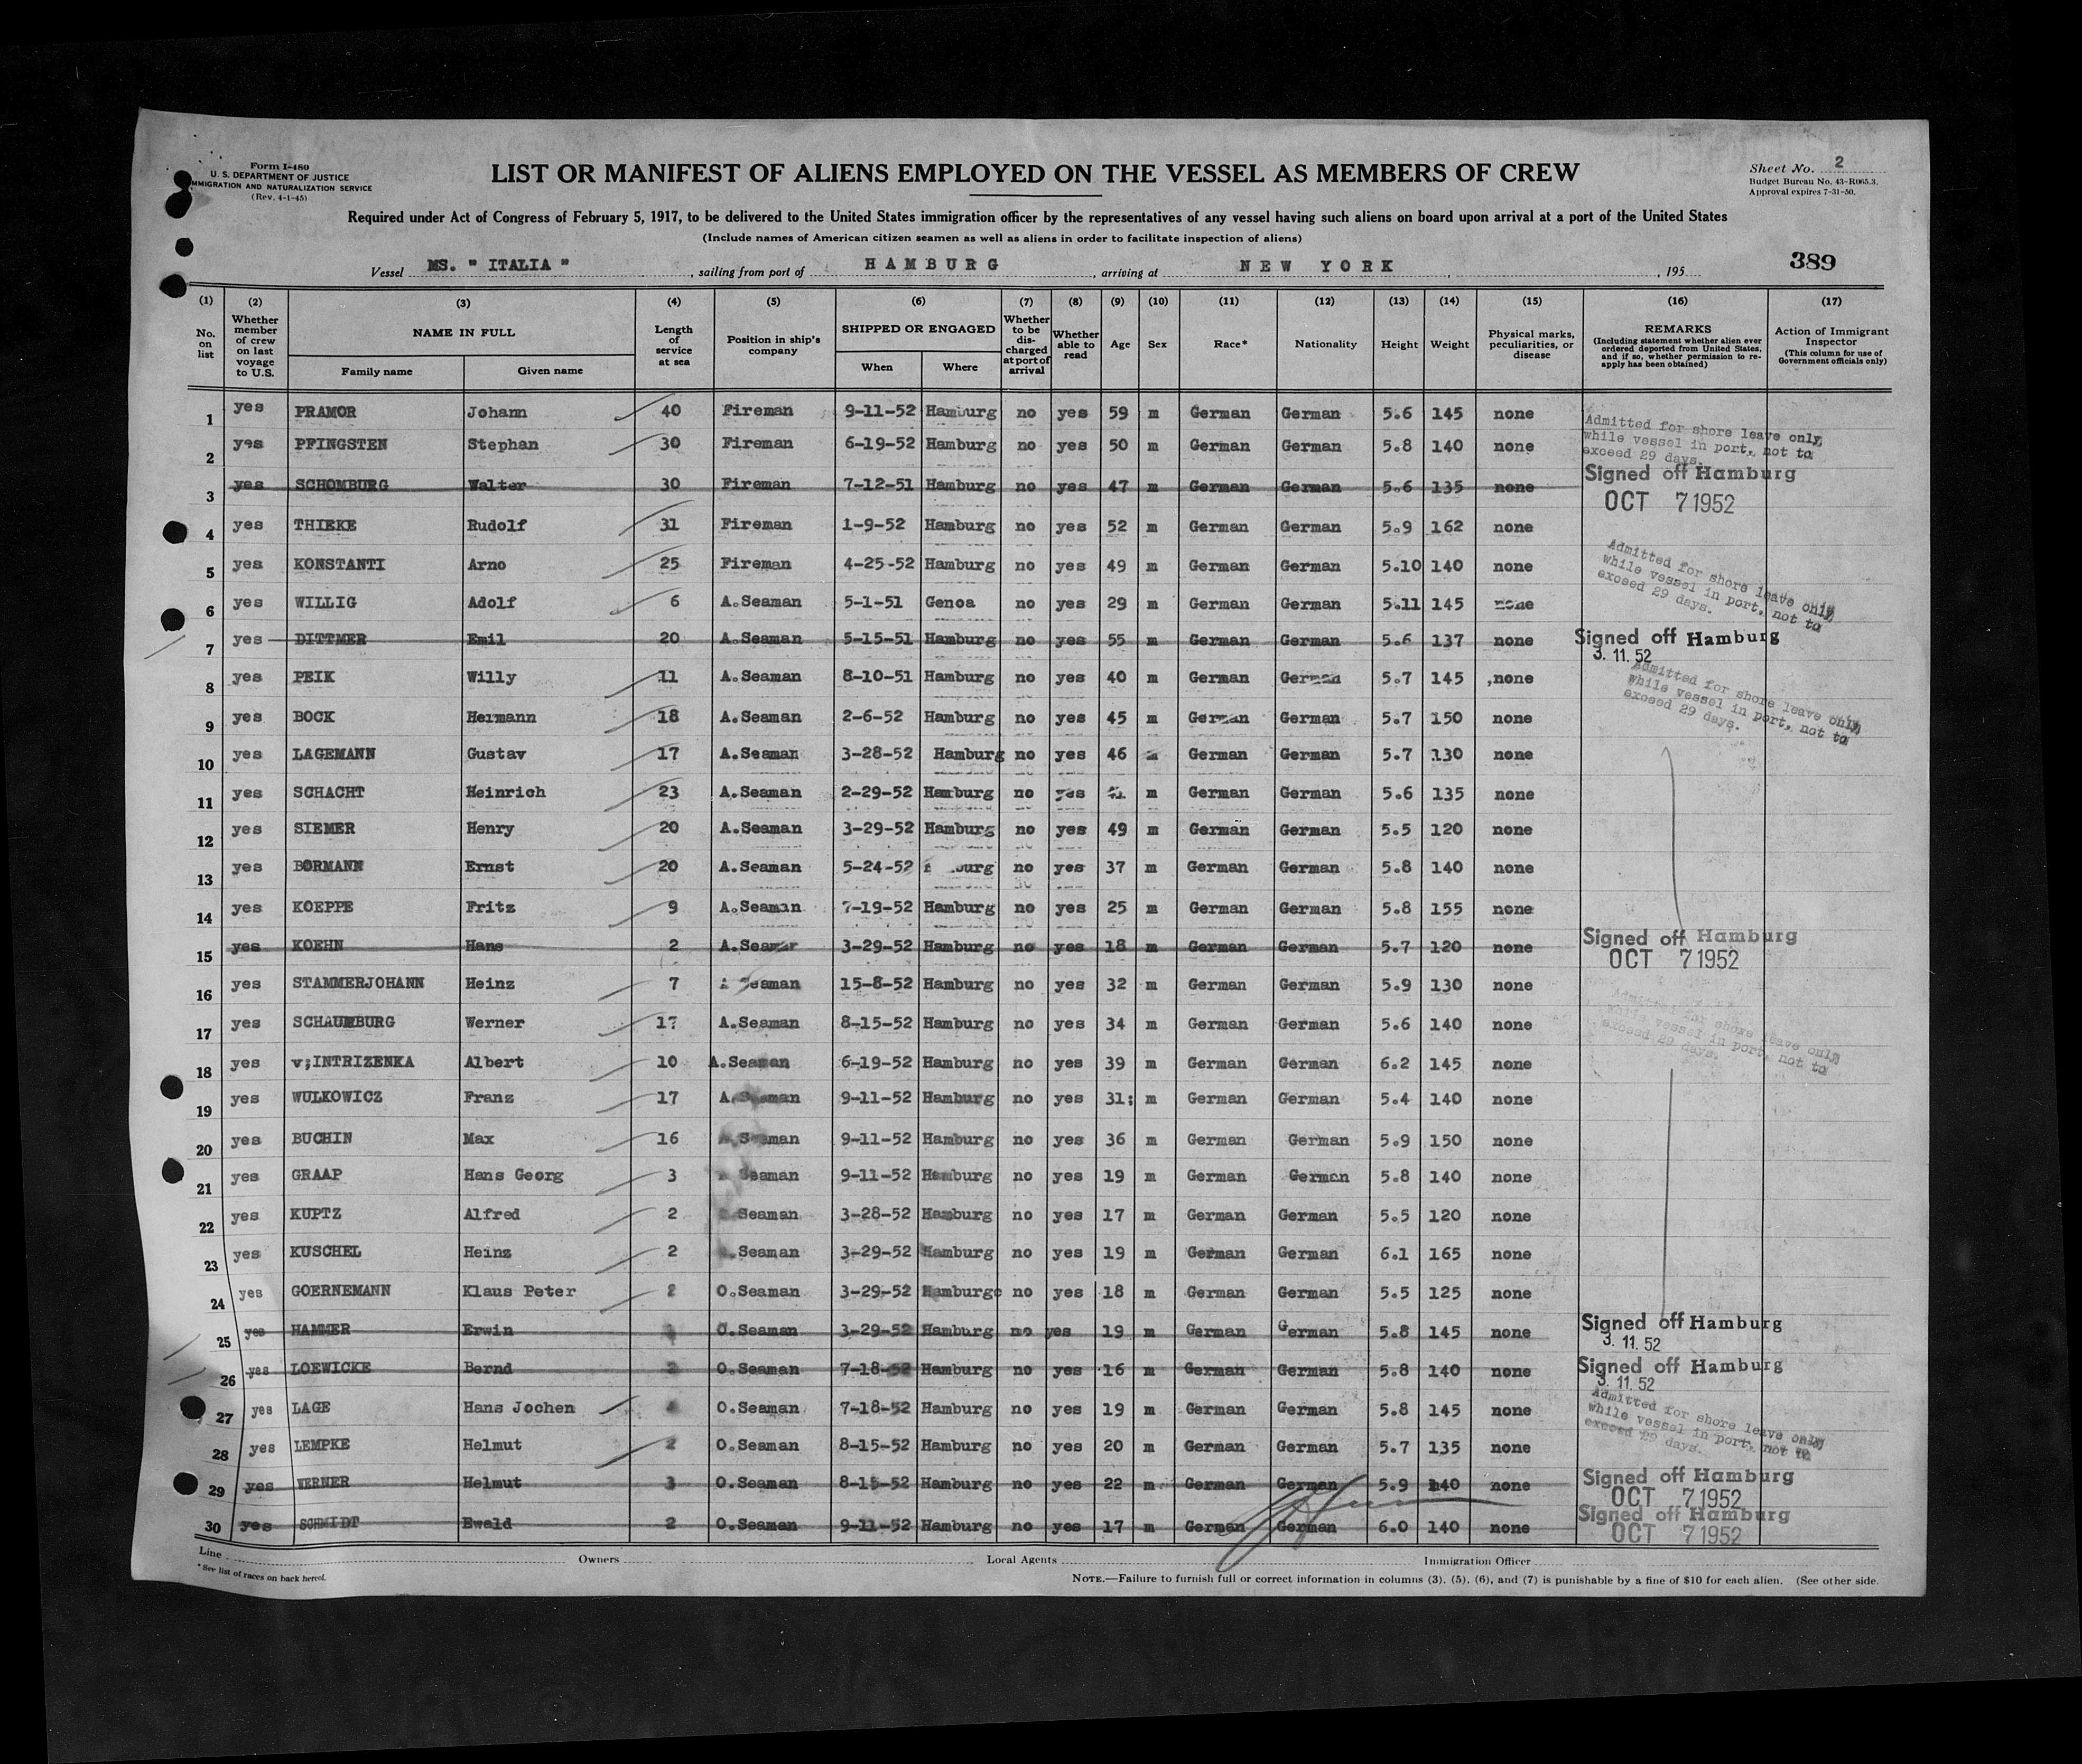 Form I-480
U. S. DEPARTMENT OF JUSTICE
IMMIGRATION AND NATURALIZATION SERVICE
(Rev. 4-1-45)
LIST OR MANIFEST OF ALIENS EMPLOYED ON THE VESSEL AS MEMBERS OF CREW
Sheet No. 2
Budget Bureau No. 43-R065.3.
Approval expires 7-31-50.
Required under Act of Congress of February 5, 1917, to be delivered to the United States immigration officer by the representatives of any vessel having such aliens on board upon arrival at a port of the United States
(Include names of American citizen seamen as well as aliens in order to facilitate inspection of aliens)
Vessel MS. " ITALIA " , sailing from port of HAMBURG , arriving at NEW YORK , 195
389
(1) (2) (3) (4) (5) (6) (7) (8) (9) (10) (11) (12) (13) (14) (15) (16) (17)
No. on list
Whether member of crew on last voyage to U.S.
NAME IN FULL
Family name
Given name
Length of service at sea
Position in ship's company
SHIPPED OR ENGAGED
When
Where
Whether to be discharged at port of arrival
Whether able to read
Age
Sex
Race*
Nationality
Height
Weight
Physical marks, peculiarities, or disease
REMARKS
(Including statement whether alien ever ordered deported from United States, and if so, whether permission to re-apply has been obtained)
Action of Immigrant Inspector
(This column for use of Government officials only)
1 yes PRAMOR Johann 40 Fireman 9-11-52 Hamburg no yes 59 m German German 5.6 145 none
Admitted for shore leave only, while vessel in port, not to exceed 29 days.
2 yes PFINGSTEN Stephan 30 Fireman 6-19-52 Hamburg no yes 50 m German German 5.8 140 none
3 yes SCHOMBURG Walter 30 Fireman 7-12-51 Hamburg no yes 47 m German German 5.6 135 none Signed off Hamburg
OCT 7 1952
4 yes THIEKE Rudolf 31 Fireman 1-9-52 Hamburg no yes 52 m German German 5.9 162 none
5 yes KONSTANTI Arno 25 Fireman 4-25-52 Hamburg no yes 49 m German German 5.10 140 none
Admitted for shore leave only, while vessel in port, not to exceed 29 days.
6 yes WILLIG Adolf 6 A.Seaman 5-1-51 Genoa no yes 29 m German German 5.11 145 none
7 yes DITTMER Emil 20 A.Seaman 5-15-51 Hamburg no yes 55 m German German 5.6 137 none Signed off Hamburg
3. 11. 52
8 yes PEIK Willy 11 A.Seaman 8-10-51 Hamburg no yes 40 m German German 5.7 145 ,none
Admitted for shore leave only, while vessel in port, not to exceed 29 days.
9 yes BOCK Hermann 18 A.Seaman 2-6-52 Hamburg no yes 45 m German German 5.7 150 none
10 yes LAGEMANN Gustav 17 A.Seaman 3-28-52 Hamburg no yes 46 German German 5.7 130 none
11 yes SCHACHT Heinrich 23 A.Seaman 2-29-52 Hamburg no yes m German German 5.6 135 none
12 yes SIEMER Henry 20 A.Seaman 3-29-52 Hamburg no yes 49 m German German 5.5 120 none
13 yes BORMANN Ernst 20 A.Seaman 5-24-52 no yes 37 m German German 5.8 140 none
14 yes KOEPPE Fritz 9 A.Seaman 7-19-52 Hamburg no yes 25 m German German 5.8 155 none
15 yes KOEHN Hans 2 A.Seaman 3-29-52 Hamburg no yes 18 m German German 5.7 120 none Signed off Hamburg
OCT 7 1952
16 yes STAMMERJOHANN Heinz 7 Seaman 15-8-52 Hamburg no yes 32 m German German 5.9 130 none
17 yes SCHAUMBURG Werner 17 A.Seaman 8-15-52 Hamburg no yes 34 m German German 5.6 140 none
Admitted for shore leave only, while vessel in port, not to exceed 29 days.
18 yes v;INTRIZENKA Albert 10 A.Seaman 6-19-52 Hamburg no yes 39 m German German 6.2 145 none
19 yes WULKOWICZ Franz 17 A.Seaman 9-11-52 Hamburg no yes 31; m German German 5.4 140 none
20 yes BUCHIN Max 16 A.Seaman 9-11-52 Hamburg no yes 36 m German German 5.9 150 none
21 yes GRAAP Hans Georg 3 Seaman 9-11-52 Hamburg no yes 19 m German German 5.8 140 none
22 yes KUPTZ Alfred 2 Seaman 3-28-52 Hamburg no yes 17 m German German 5.5 120 none
23 yes KUSCHEL Heinz 2 Seaman 3-29-52 Hamburg no yes 19 m German German 6.1 165 none
24 yes GOERNEMANN Klaus Peter 2 O.Seaman 3-29-52 Hamburg no yes 18 m German German 5.5 125 none
25 yes HAMMER Erwin O.Seaman 3-29-52 Hamburg no yes 19 m German German 5.8 145 none Signed off Hamburg
3. 11. 52
26 yes LOEWICKE Bernd 2 O.Seaman 7-18-52 Hamburg no yes 16 m German German 5.8 140 none Signed off Hamburg
3. 11. 52
27 yes LAGE Hans Jochen O.Seaman 7-18-52 Hamburg no yes 19 m German German 5.8 145 none
Admitted for shore leave only, while vessel in port, not to exceed 29 days.
28 yes LEMPKE Helmut 2 O.Seaman 8-15-52 Hamburg no yes 20 m German German 5.7 135 none
29 yes WERNER Helmut 3 O.Seaman 8-15-52 Hamburg no yes 22 m German German 5.9 140 none Signed off Hamburg
OCT 7 1952
30 yes SCHMIDT Ewald 2 O.Seaman 9-11-52 Hamburg no yes 17 m German German 6.0 140 none Signed off Hamburg
OCT 7 1952
Line Owners Local Agents Immigration Officer
* See list of races on back hereof.
NOTE.—Failure to furnish full or correct information in columns (3), (5), (6), and (7) is punishable by a fine of $10 for each alien. (See other side.